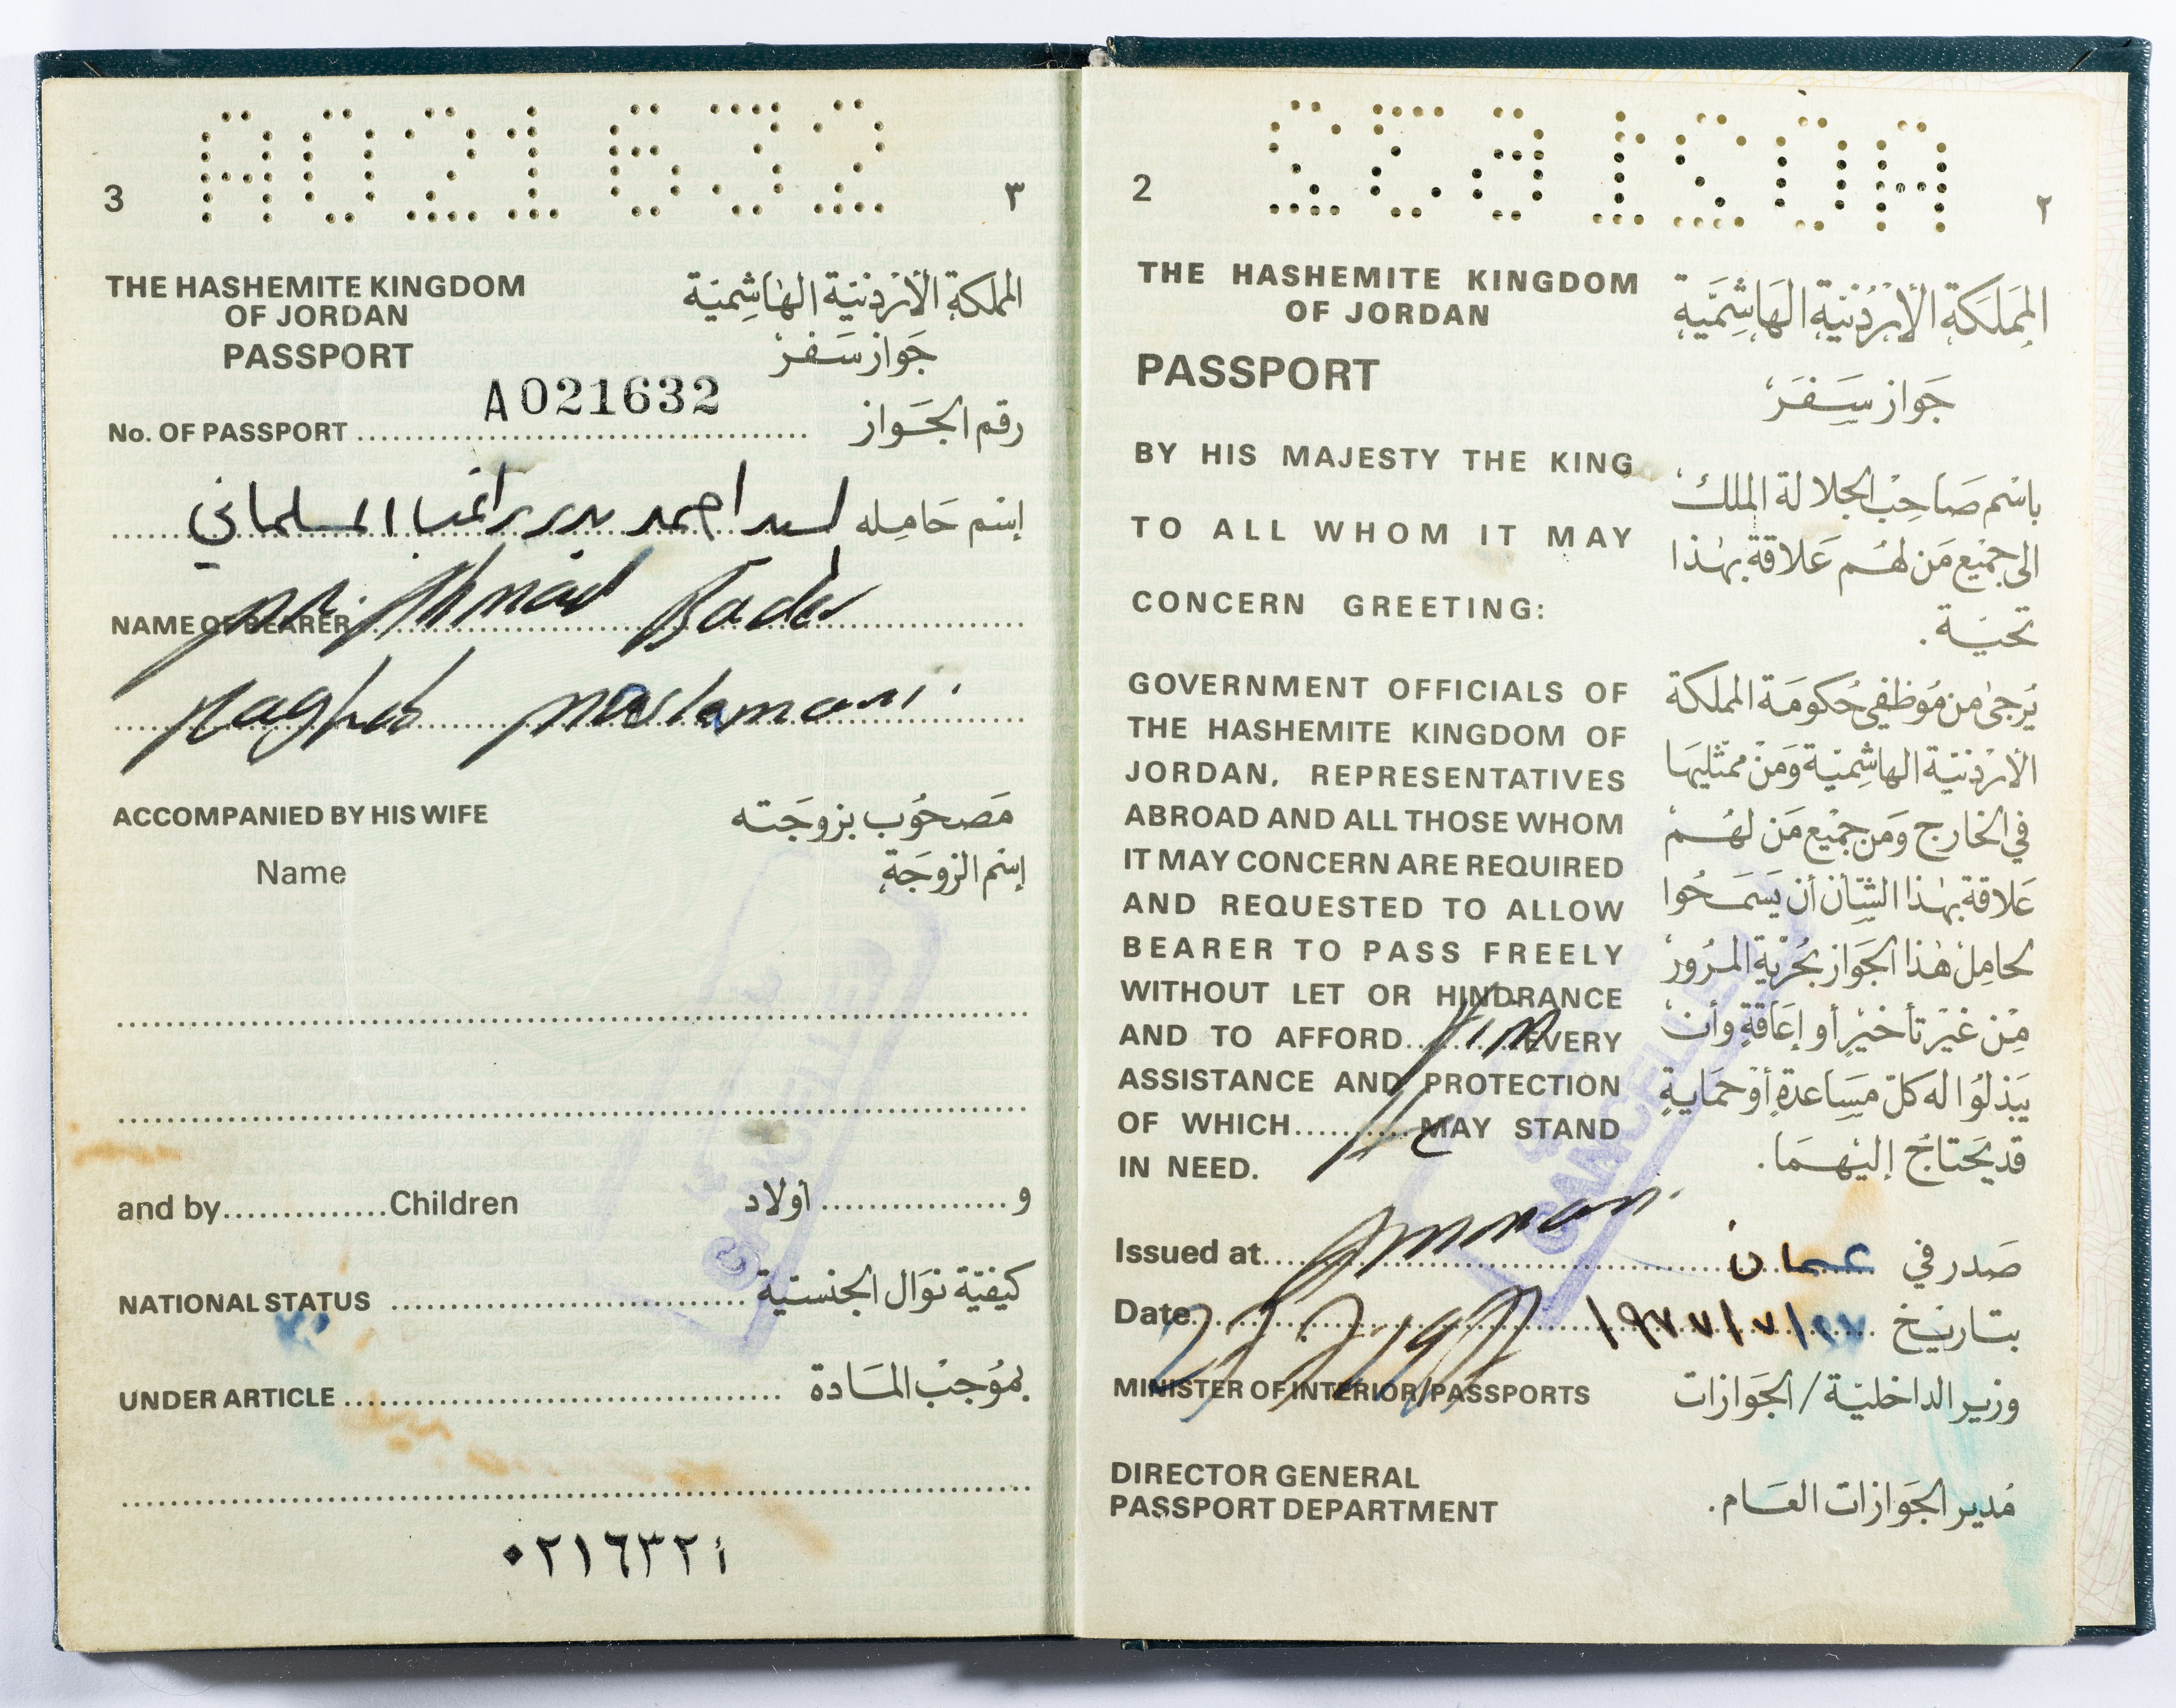 A021632
3 ٣
THE HASHEMITE KINGDOM
OF JORDAN
PASSPORT
المملكة الأردنية الهاشمية
جواز سفر
No. OF PASSPORT A021632 رقم الجواز
إسم حامله السيد احمد بدر راغب المسلماني
NAME OF BEARER Mr. Ahmad Bader
Ragheb Maslamani.
ACCOMPANIED BY HIS WIFE مصحوب بزوجته
Name إسم الزوجة
and by..............Children و................أولاد
NATIONAL STATUS كيفية نوال الجنسية
UNDER ARTICLE بموجب المادة
أ ٠٢١٦٣٢
A021632
2 ٢
THE HASHEMITE KINGDOM
OF JORDAN
PASSPORT
BY HIS MAJESTY THE KING
TO ALL WHOM IT MAY
CONCERN GREETING:
GOVERNMENT OFFICIALS OF
THE HASHEMITE KINGDOM OF
JORDAN, REPRESENTATIVES
ABROAD AND ALL THOSE WHOM
IT MAY CONCERN ARE REQUIRED
AND REQUESTED TO ALLOW
BEARER TO PASS FREELY
WITHOUT LET OR HINDRANCE
AND TO AFFORD him EVERY
ASSISTANCE AND PROTECTION
OF WHICH he MAY STAND
IN NEED.
المملكة الأردنية الهاشمية
جواز سفر
باسم صاحب الجلالة الملك
الى جميع من لهم علاقة بهذا
تحية .
يرجى من موظفي حكومة المملكة
الأردنية الهاشمية ومن ممثليها
في الخارج ومن جميع من لهم
علاقة بهذا الشأن أن يسمحوا
لحامل هذا الجواز بحرية المرور
من غير تأخير أو إعاقة وأن
يبذلوا له كل مساعدة أو حماية
قد يحتاج إليهما .
Issued at Amman. صدر في عمان
Date بتاريخ ١٩٧٧/٧/٢٧
MINISTER OF INTERIOR/PASSPORTS وزير الداخلية / الجوازات
DIRECTOR GENERAL
PASSPORT DEPARTMENT
مدير الجوازات العام .
CANCELLED
CANCELLED